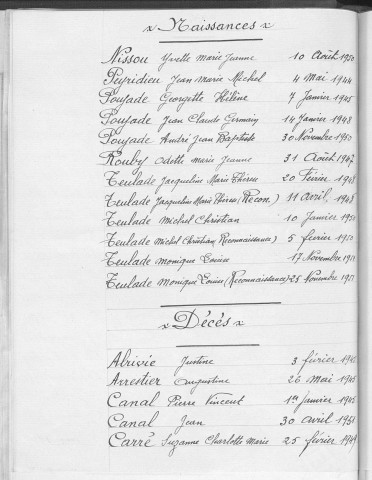 Naissances
Nissou Yvette Marie Jeanne 10 Août 1950
Peyridieu Jean Marie Michel 4 Mai 1944
Poujade Georgette Hélène 7 Janvier 1945
Poujade Jean Claude Germain 14 Janvier 1948
Poujade André Jean Baptiste 30 Novembre 1950
Rouby Odette Marie Jeanne 31 Août 1947
Teulade Jacqueline Marie Thérèse 20 Février 1948
Teulade Jacqueline Marie Thérèse (Recon.) 11 Avril 1948
Teulade Michel Christian 10 Janvier 1950
Teulade Michel Christian (Reconnaissance) 5 février 1950
Teulade Monique Louise 17 Novembre 1951
Teulade Monique Louise (Reconnaissance) 25 Novembre 1951
Décés
Abrivie Justine 3 février
Arrestier Augustine 26 Mai 1945
Canal Pierre Vincent 1er Janvier 1945
Canal Jean 30 avril 1951
Carré Suzanne Charlotte Marie 25 février 1949